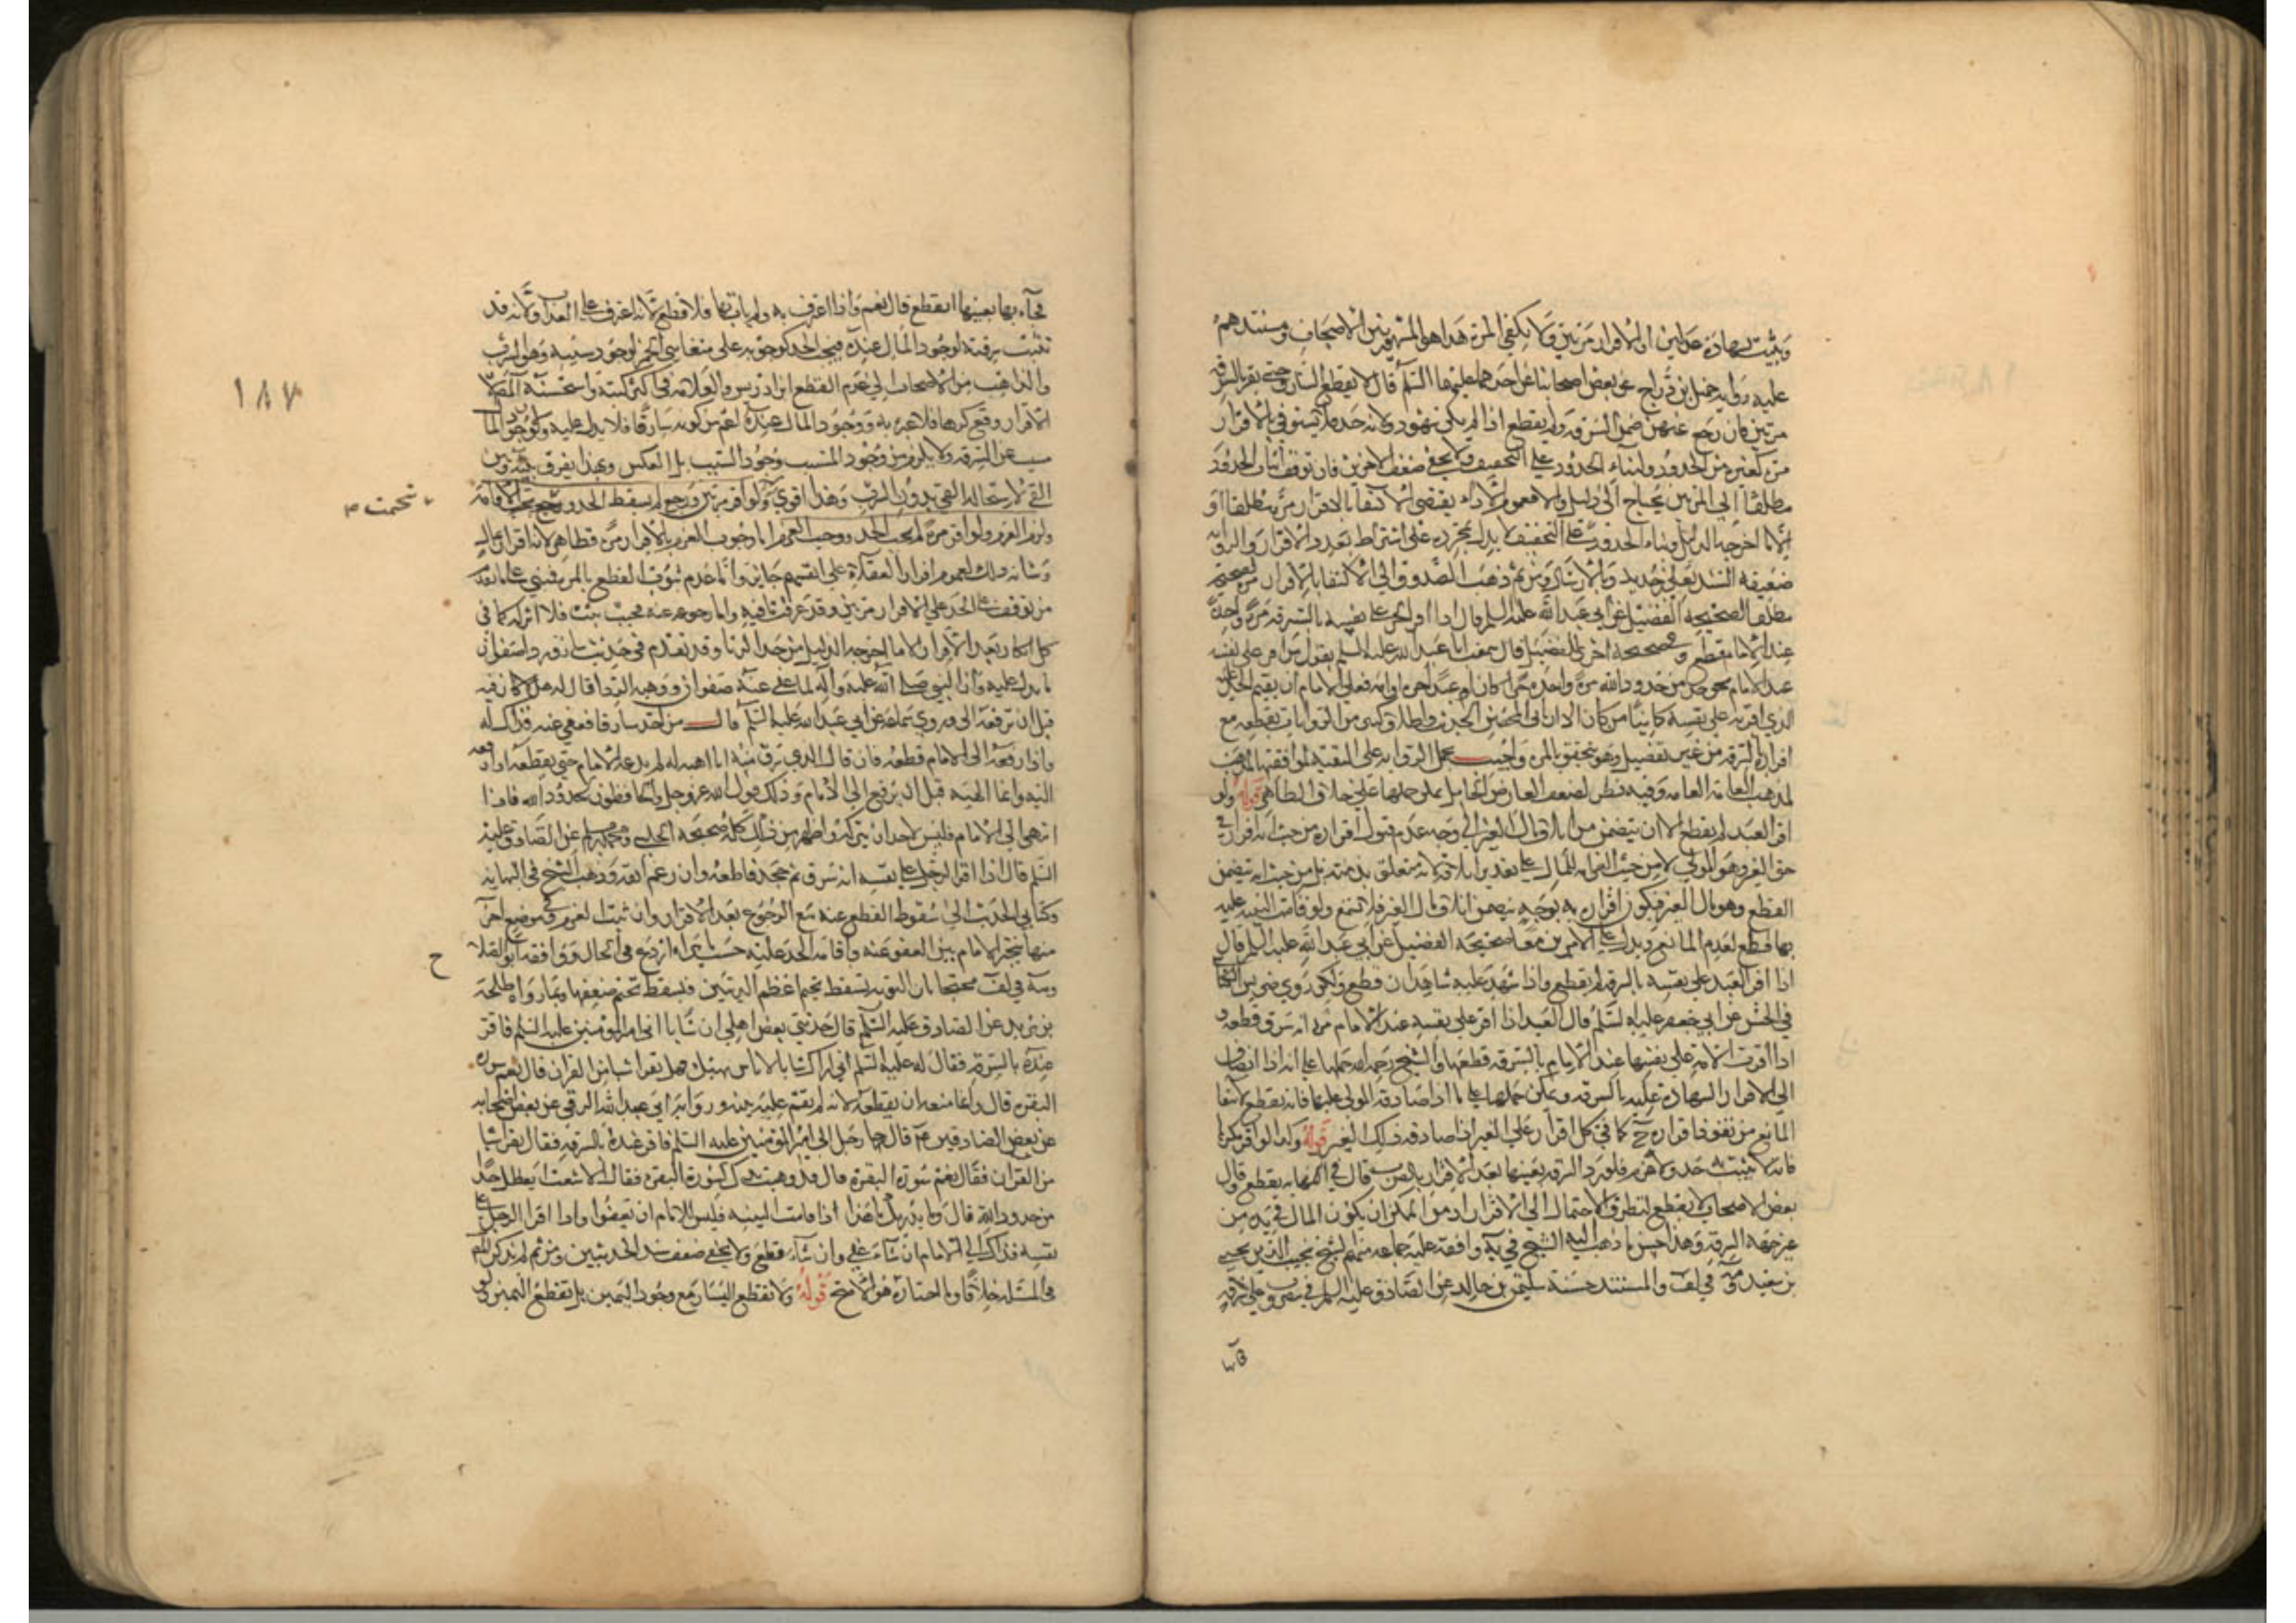 ويثبت بشهادة عدلين او الاقرار مرتين ولا يكفي المرة هذا هو المشهور بين الاصحاب ومستندهم
عليه رواية جميل بن دراج عن بعض اصحابنا عن احدهما عليهما السلم قال لا يقطع السارق حتى يقر بالسرقة
مرتين فان رجع ضمن السرقة ولم يقطع اذا لم يكن شهود ولانه حد فلا يستوفى بالاقرار
مرة كغيره من الحدود ولبناء الحدود على التخفيف ولا يخفى ضعف الامرين فان توقف اثبات الحدود
مطلقا الى المرتين يحتاج الى دليل والا فعموم الادلة يقتضي الاكتفا بالاقرار مرة مطلقا او
الا ما اخرجه الدليل وبناء الحدود على التخفيف لا يدل بمجرده على اشتراط تعدد الاقرار والرواية
ضعيفة السند بعلي بن حديد وبالارسال ومن ثم ذهب الصدوق الى الاكتفا بالاقرار مرة
مطلقا لصحيحة الفضيل عن ابي عبد الله عليه السلم قال اذا اقر الحر على نفسه بالسرقة مرة واحدة
عند الامام قطع وصحيحة اخرى للفضيل قال سمعت ابا عبد الله عليه السلم يقول من اقر على نفسه
عند الامام بحق حد من حدود الله مرة واحدة حرا كان او عبدا حرة او امة فعلى الامام ان يقيم الحد عليه
الذي اقر به على نفسه كاينا من كان الا الزاني المحصن الحديث واطلاق كثير من الروايات بقطعه مع
اقراره بالسرقة من غير تفصيل وهو يتحقق بالمرة واجيب بحمل الرواية على التقية لموافقتها لمذهب
لمذهب العامة وفيه نظر لضعف المعارض الحامل على حملها على خلاف الظاهر قوله ولو
اقر العبد لم يقطع الا ان يتضمن من اتلاف مال الغير الى وجه عدم قبول اقراره من حيث انه اقرار في
حق الغير وهو المولى لا من حيث الغرامة للمال على تقدير اتلافه لانه متعلق بذمته بل من حيث انه يتضمن
القطع وهو مال الغير فيكون اقراره به بوجه يتضمن اتلاف مال الغير فلا تسمع ولو قامت البينة عليه
بها قطع لعدم المانع ويدل على الامرين معا صحيحة الفضيل عن ابي عبد الله عليه السلم قال
اذا اقر العبد على نفسه بالسرقة لم يقطع واذا شهد عليه شاهدان قطع ولكن روي ضريس
في الحسن عن ابي جعفر عليه السلم قال العبد اذا اقر على نفسه عند الامام مرة انه سرق قطعه و
اذا اقرت الامة على نفسها عند الامام بالسرقة قطعها والشيخ رحمه الله حملها على انه اذا انضاف
الى الاقرار الشهادة عليه بالسرقة ويمكن حملها على ما اذا صادقه المولى عليها فانه يقطع لانتفا
المانع من نفوذ اقراره ح كما في كل اقرار على الغير اذا صادقه ذلك الغير قوله وكذا لو اقر مكرها
فانه لا يثبت به حد ولا غرم فلو رد السرقة بعينها بعد الاقرار بالضرب قال في النهاية يقطع وقال
بعض الاصحاب لا يقطع لتطرق الاحتمال الى الاقرار اذ من الممكن ان يكون المال في يده من
غير جهة السرقة وهذا حسن ما ذهب اليه الشيخ في يه وافقه عليه جماعة منهم الشيخ نجيب الدين يحيى
بن سعيد في لف والمستند حسنة سليمن بن خالد عن الصادق عليه السلم في
فجآء بها
فجآء بها بعينها ايقطع قال نعم واذا اعترف به ولم يات بها فلا قطع لانه اعترف على العذاب ولانه قد
تثبت سرقته لوجود المال عنده فيجب الحد كوجوبه على متقايئ الخمر لوجود سببه وهو الشرب
والذاهب من الاصحاب الى عدم القطع ابن ادريس والعلامة في اكثر كتبه واستحسنه المص لان
الاقرار وقع كرها فلا عبرة به ووجود المال عنده اعم من كونه سارقا فلا يدل عليه وكون وجود المال
مسبب عن السرقة ولا يلزم من وجود المسبب وجود السبب بل العكس وبهذا يفرق بينه وبين
القئ لاستحالة القئ بدون الشرب وهذا اقوى ولو اقر مرتين ورجع لم يسقط الحد وتحتمت الاقامة
ولزم الغرم ولو اقر مرة لم يجب الحد ووجب الغرم اما وجوب الغرم بالاقرار مرة فظاهر لانه اقرار بمال
وشانه ذلك لعموم اقرار العقلاء على انفسهم جايز واما عدم ثبوت القطع بالمرة فمبني على ما تقدم
من توقف الحد على الاقرار مرتين وقد عرفت ما فيه واما رجوعه عنه فحيث يثبت فلا اثر له كما في
كل انكار بعد الاقرار الا ما اخرجه الدليل من حد الزنا وقد تقدم في حديث سارق رداء صفوان
ما يدل عليه وان النبي صلى الله عليه وآله لما عفى عنه صفوان ووهبه الردا قال له هلا كان فيه
قبل ان ترفعه الي وروي سماعة عن ابي عبد الله عليه السلم قال من اخذ سارقا فعفى عنه فذاك له
واذا رفعه الى الامام قطعه فان قال الذي سرق منه انا اهبه له لم يدعه الامام حتى يقطعه اذا رفعه
اليه وانما الهبة قبل ان يرفع الى الامام وذلك قول الله عز وجل والحافظون لحدود الله فاذا
انتهى الى الامام فليس لاحد ان يتركه واظهر من ذلك كله صحيحة الحلبي ومحمد بن مسلم عن الصادق عليه
السلم قال اذا اقر الرجل على نفسه انه سرق ثم جحد فاقطعه وان رغم انفه وذهب الشيخ في النهاية
وكتابي الحديث الى سقوط القطع عنه مع الرجوع بعد الاقرار وان ثبت الغرم وفي موضع اخر
منها بتخير الامام بين العفو عنه واقامة الحد عليه حسب ما يراه اردع في الحال ووافقه ابو الصلاح
ومة في لف محتجا بان التوبة تسقط تحتم اعظم الذنبين فيسقط تحتم ضعفها وبما رواه طلحة
بن زيد عن الصادق عليه السلم قال حدثني بعض اهلي ان شابا اتى امير المؤمنين عليه السلم فاقر
عنده بالسرقة فقال له عليه السلم اني اراك شابا لا باس بهيئتك فهل تقرا شيا من القران قال نعم سورة
البقرة قال وانما منعه ان يقطعه لانه لم يقم عليه بينة ورواية ابي عبد الله البرقي عن بعض اصحابه
عن بعض الصادقين ع قال جا رجل الى امير المؤمنين عليه السلم فاقر عنده بالسرقة فقال تقرا شيا
من القران فقال نعم سورة البقرة قال قد وهبت يدك لسورة البقرة فقال الاشعث اتعطل حدا
من حدود الله قال وما يدريك ما هذا اذا قامت البينة فليس للامام ان يعفوا واذا اقر الرجل على
نفسه فذاك الى الامام ان شآء عفى وان شآء قطع ولا يخفى ضعف سند الحديثين ومن ثم لم يذكر المص
في المسئلة خلافا وما اختاره هو الاصح قوله ولا تقطع اليسار مع وجود اليمين بل تقطع اليمين ولو
تحتمت
ح
١٨٧